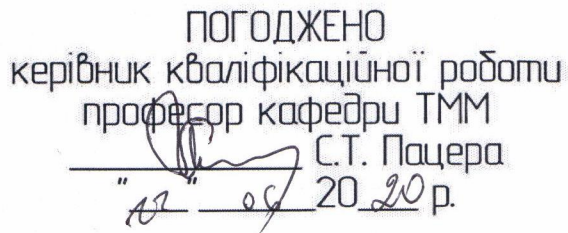 ПОГОДЖЕНО
керівник кваліфікаційної роботи
професор кафедри ТММ
С.Т. Пацера
" " 06 2020 р.